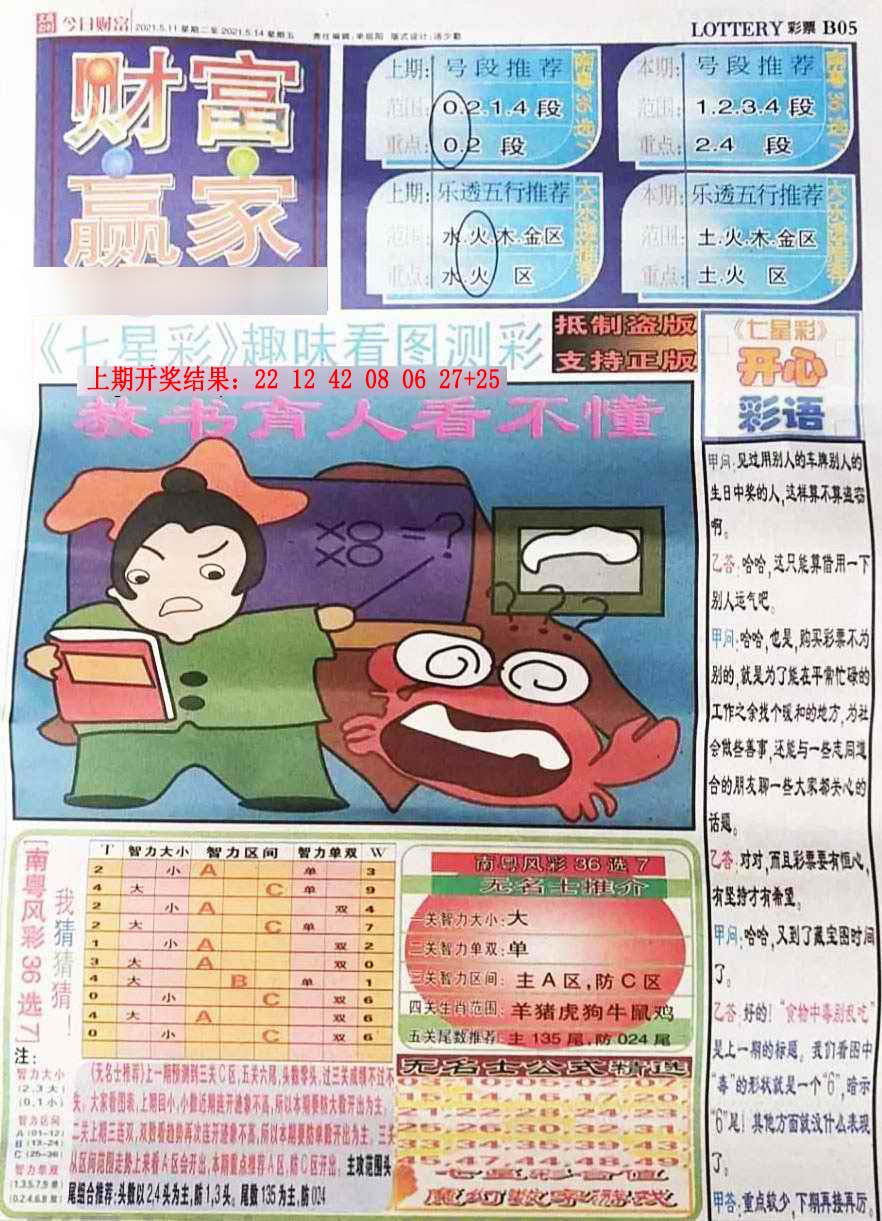 今日财富
2021.5.11 星期二至 2021.5.14 星期五
LOTTERY 彩票 B05
财富
赢家
上期:号段推荐
范围:0.2.1.4 段
重点:0.2 段
本期:号段推荐
范围:1.2.3.4 段
重点:2.4 段
上期:乐透五行推荐
范围:水.火.木.金区
重点:水.火 区
本期:乐透五行推荐
范围:土.火.木.金区
重点:土.火 区
《七星彩》趣味看图测彩
抵制盗版
支持正版
上期开奖结果：22 12 42 08 06 27+25
教书育人看不懂
XX
XX
OO
OO
=?
《七星彩》
开心
彩语
甲问:见过用别人的车牌别人的
生日中奖的人,这样算不算盗窃
啊。
乙答:哈哈,这只能算借用一下
别人运气吧。
甲问:哈哈,也是,购买彩票不为
别的,就是为了能在平常忙碌的
工作之余找个暖和的地方,为社
会做些善事,还能与一些志同道
合的朋友聊一些大家都关心的
话题。
乙答:对对,而且彩票要有恒心,
有坚持才有希望。
甲问:哈哈,又到了藏宝图时间
了。
乙答:好的!“食物中毒别乱吃”
是上一期的标题。我们看图中
“毒”的形状就是一个“6”,暗示
“6”尾!其他方面就没什么表现
了。
甲答:重点较少,下期再接再厉。
[南粤风彩36选7]
我猜猜猜!
T 智力大小 智力区间 智力单双 W
2 小 A 单 3
4 大 C 单 9
2 小 A 双 4
2 大 C 单 7
1 小 A 双 2
3 大 A 双 0
4 大 B 单 1
0 小 C 双 6
4 大 A 双 6
0 小 C 双 6
注:
智力大小
(2.3大)
(0.1小)
智力区间
A (01-12)
B (13-24)
C (25-36)
智力单双
(1.3.5.7.9单)
(0.2.4.6.8双)
《无名士推荐》上一期预测到三关C区,五关六尾,头数零头,过三关成绩不过不
失。大家看图表,上期回小,小数近期连开迹象不高,所以本期要防大数开出为主。
二关上期三连双,双数看趋势再次连开迹象不高,所以本期要防单数开出为主。三关
从区间范围走势上来看A区会开出,本期重点推荐A区,防C区开出。主攻范围头
尾组合推荐:头数以2,4头为主,防1,3头。尾数135为主,防024
南粤风彩36选7
无名士推介
一关智力大小:大
二关智力单双:单
三关智力区间:主A区,防C区
四关生肖范围:羊猪虎狗牛鼠鸡
五关尾数推荐:主135尾,防024尾
无名士公式精选
03-10-05-02-07
15-14-16-17-20
21-22-28-24-23
25-34-27-29-30
33-35-38-39-43
45-47-44-48-49
七星彩合值
魔幻数字游戏